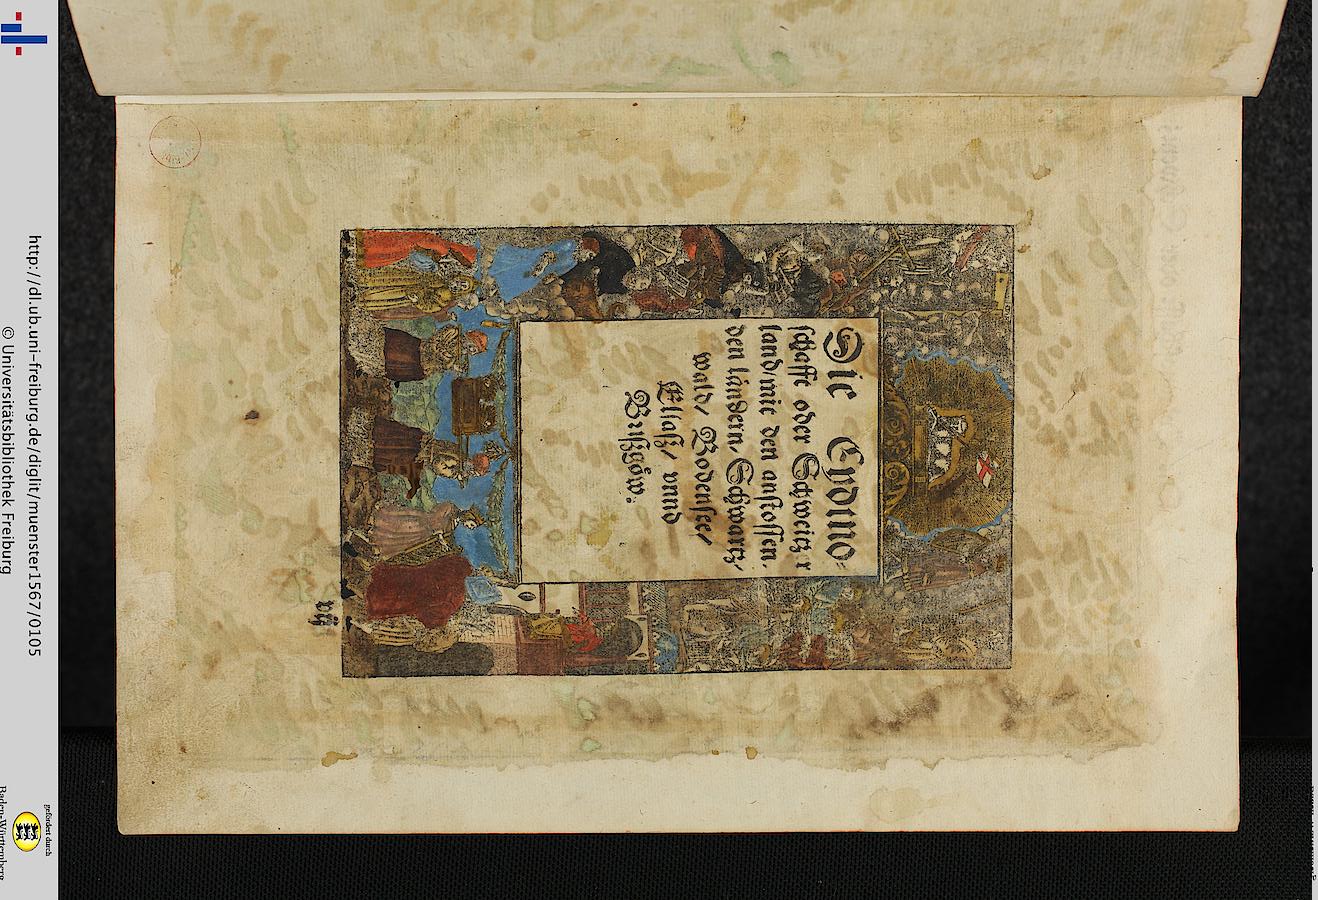 Die Eydtno⸗
schafft oder Schweitz r
land/mit den anstossen⸗
den låndern, Schwartz⸗
wald/ Bodensee/
Elsaß/ vnnd
Brißgöw.
http://dl.ub.uni-freiburg.de/diglit/muenster1567/0105
© Universitätsbibliothek Freiburg
gefördert durch
Baden-Württemberg